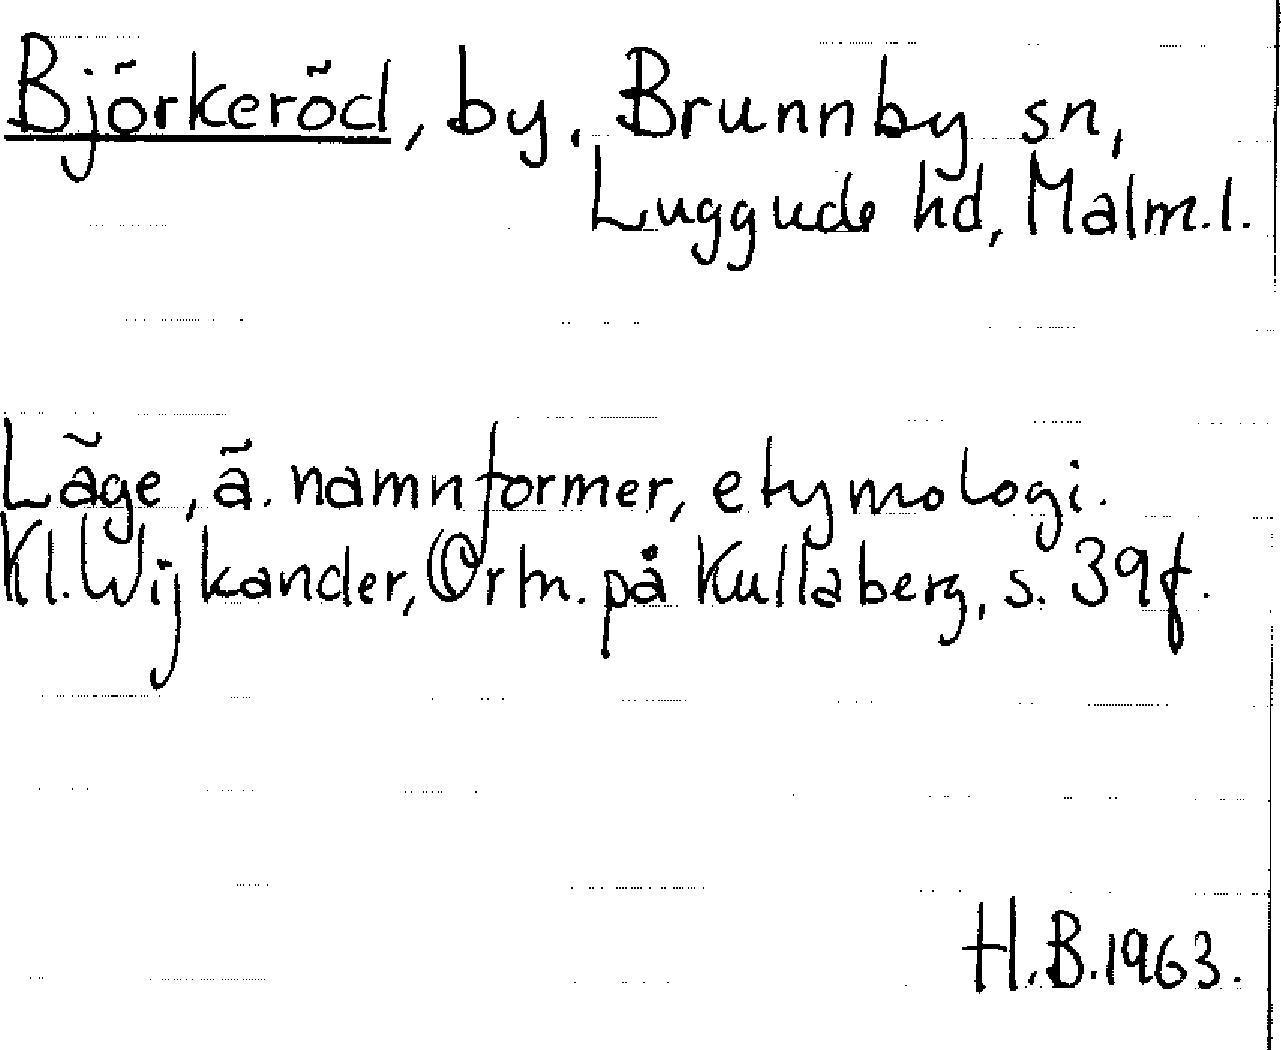 Björkeröd, by. Brunnby sn,
Luggude hd, Malm.l.
Läge, ä. namnformer, etymologi.
Kl. Wijkander, Ortn. på Kullaberg, s. 39f.
H.B. 1963.